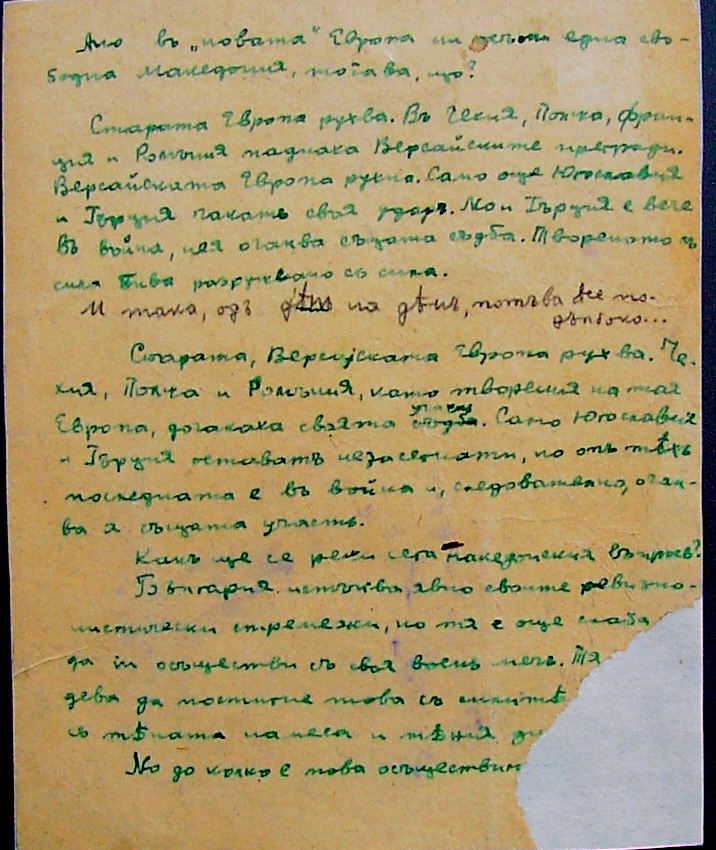 Ако въ „новата" Европа ни една сво-
бодна Македония, тогава, що?
Старата Европа рухва. Въ Чехия, Полша, Фран-
ция и Ромъния паднаха Версайските прегради.
Версайската Европа рухна. Само още Югославия
и Гърция чакатъ своя ударъ. Но и Гърция е вече
въ война, нея очаква същата съдба. Твореното съ
сила бива разрушвано съ сила.
И така, отъ на дѣнь, потъва все по-
дълбоко...
Старата, Версайската Европа рухва. Че-
хия, Полша и Ромъния, като творения на тая
Европа, дочакаха своята участь съдба. Само Югославия
и Гърция оставатъ незасегнати, но отъ тѣхъ
последната е въ война и, следователно, очак-
ва я същата участь.
Какъ ще се реши сега македонския въпросъ?
България изтъква явно своите ревизио-
нистически стремежи, но тя е още слаба
да ги осъществи съ своя воененъ мечъ. Тя
дева да постигне това съ силитѣ
съ тѣхната намеса и тѣхния
Но до колко е това осъществим